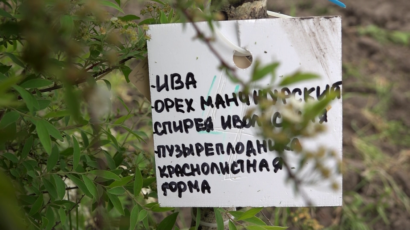 -ИВА
-ОРЕХ МАНЧЖУРСКИЙ
СПИРЕЯ
-ПУЗЫРЕПЛОДНИК
КРАСНОЛИСТНАЯ-
ФОРМА